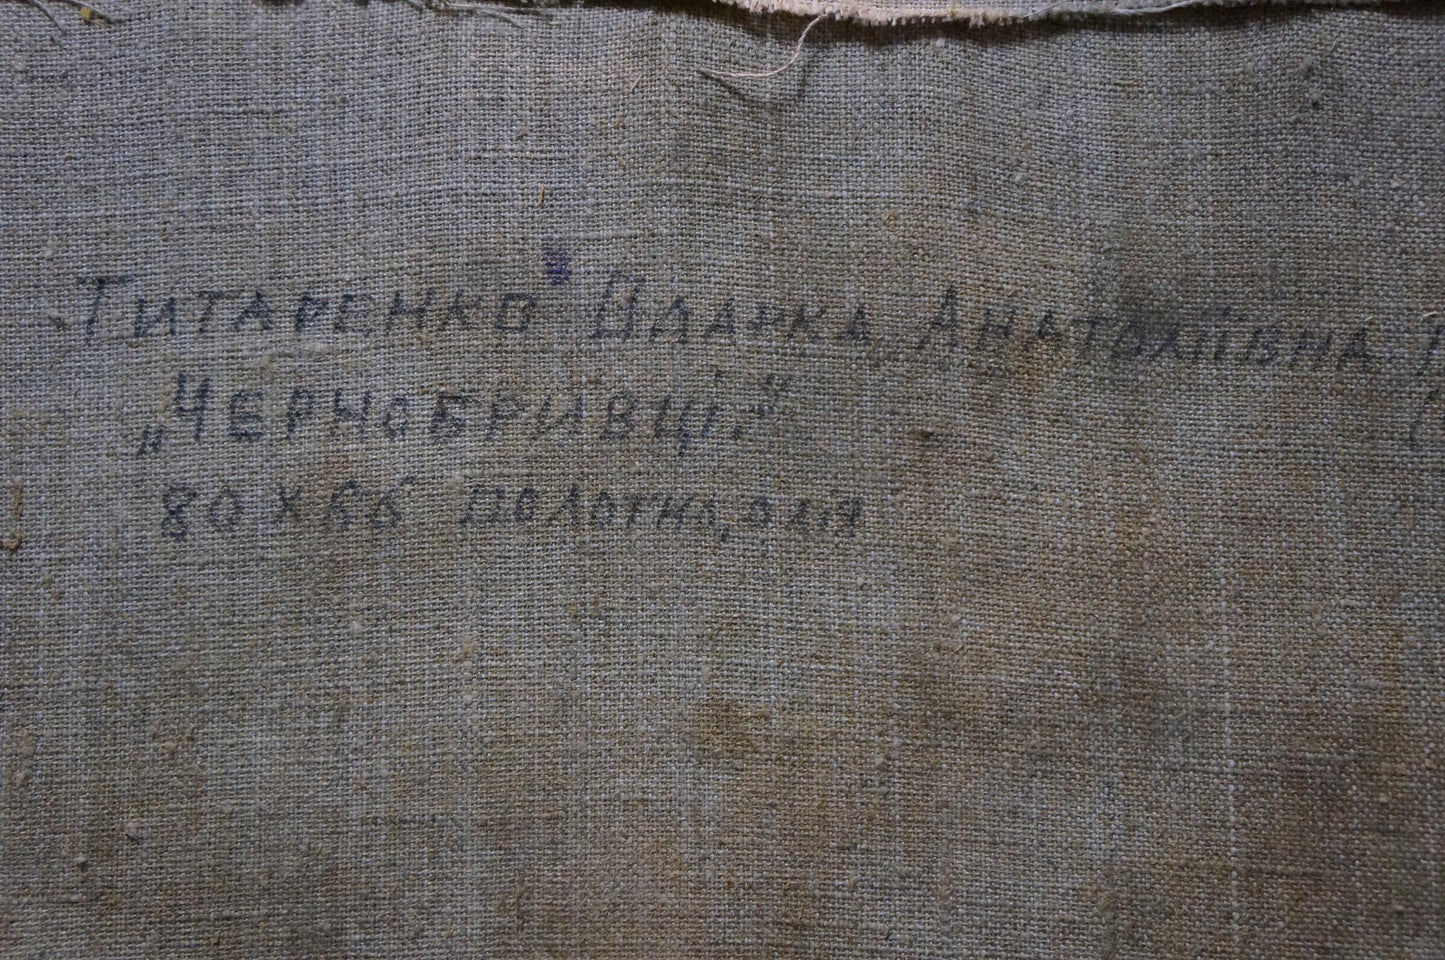 Титаренко Одарка Анатоліївна
„Чернобривці"
80 х 66 полотно, олія